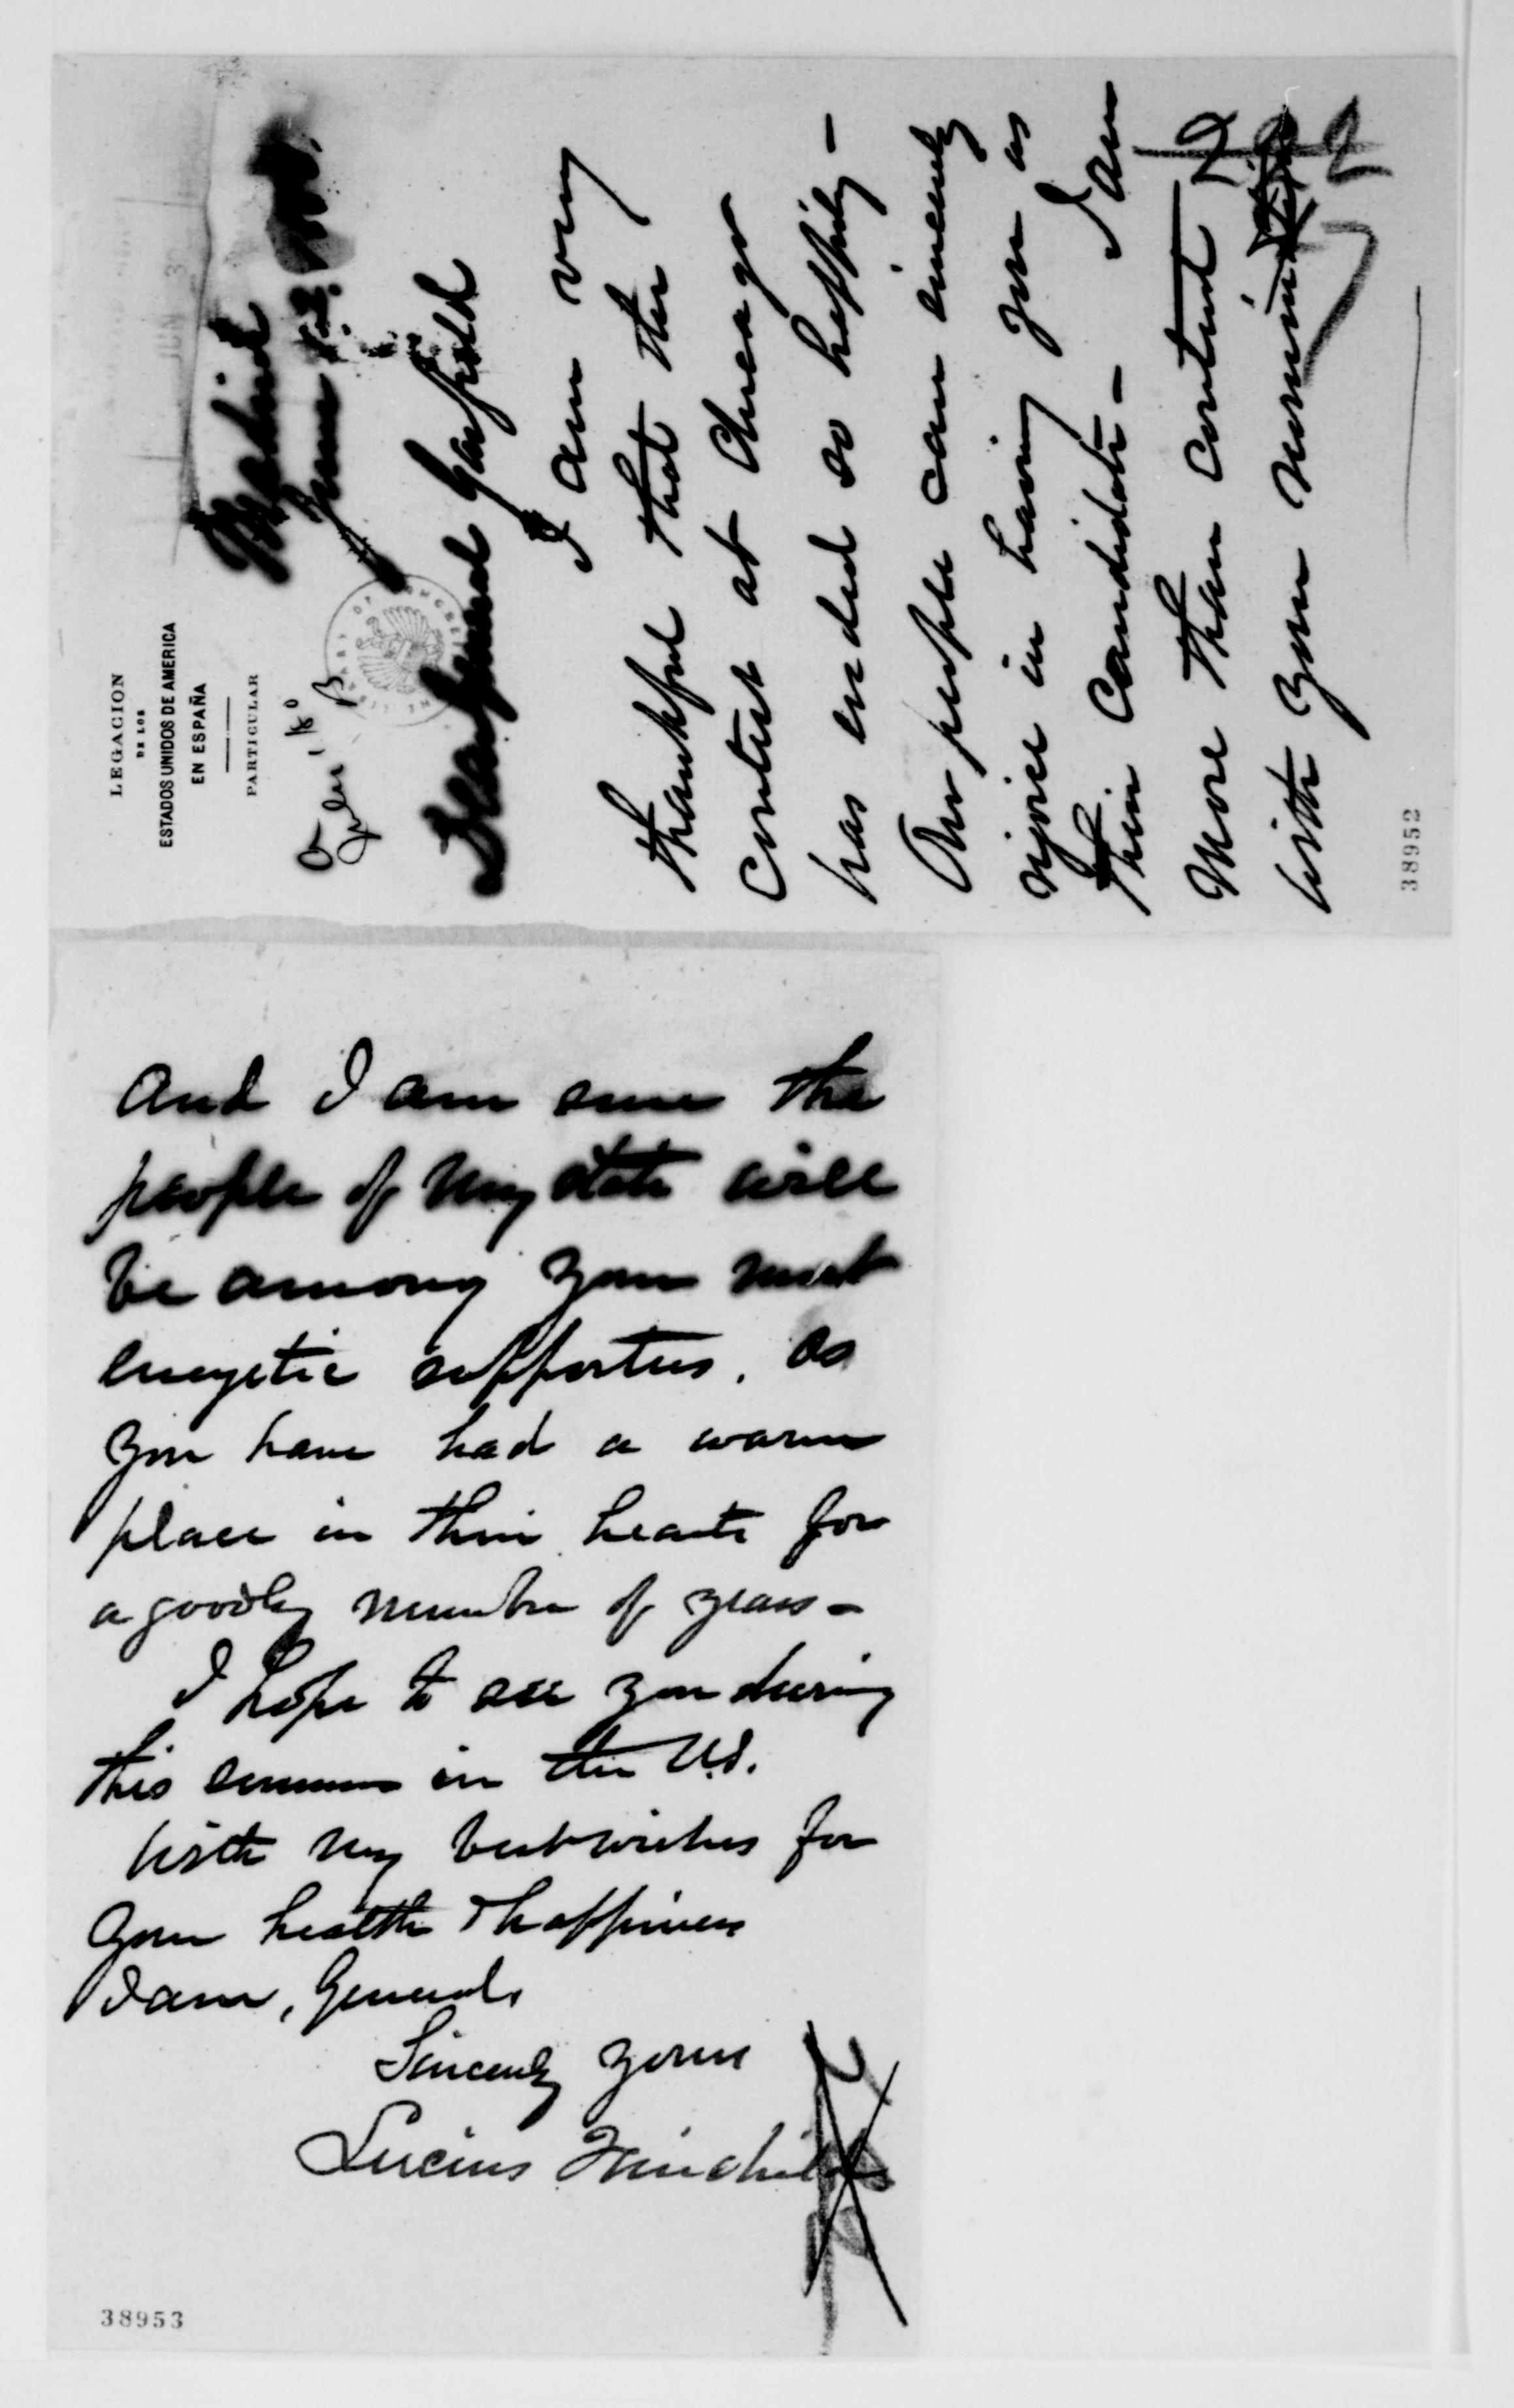 LEGACION
DE LOS
ESTADOS UNIDOS DE AMERICA
EN ESPAÑA
PARTICULAR
Madrid
June
Dear General Garfield
I am very
thankful that the
contest at Chicago
has ended so happily —
Our people can sincerely
rejoice in having you as
their Candidate — I am
more than content
with your
38952
And I am sure the
people of my state will
be among your most
energetic supporters, as
you have had a warm
place in their hearts for
a goodly number of years —
I hope to see you during
this summer in the U.S.
With my best wishes for
your health & happiness
I am, General,
Sincerely yours
Lucius Fairchild
38953